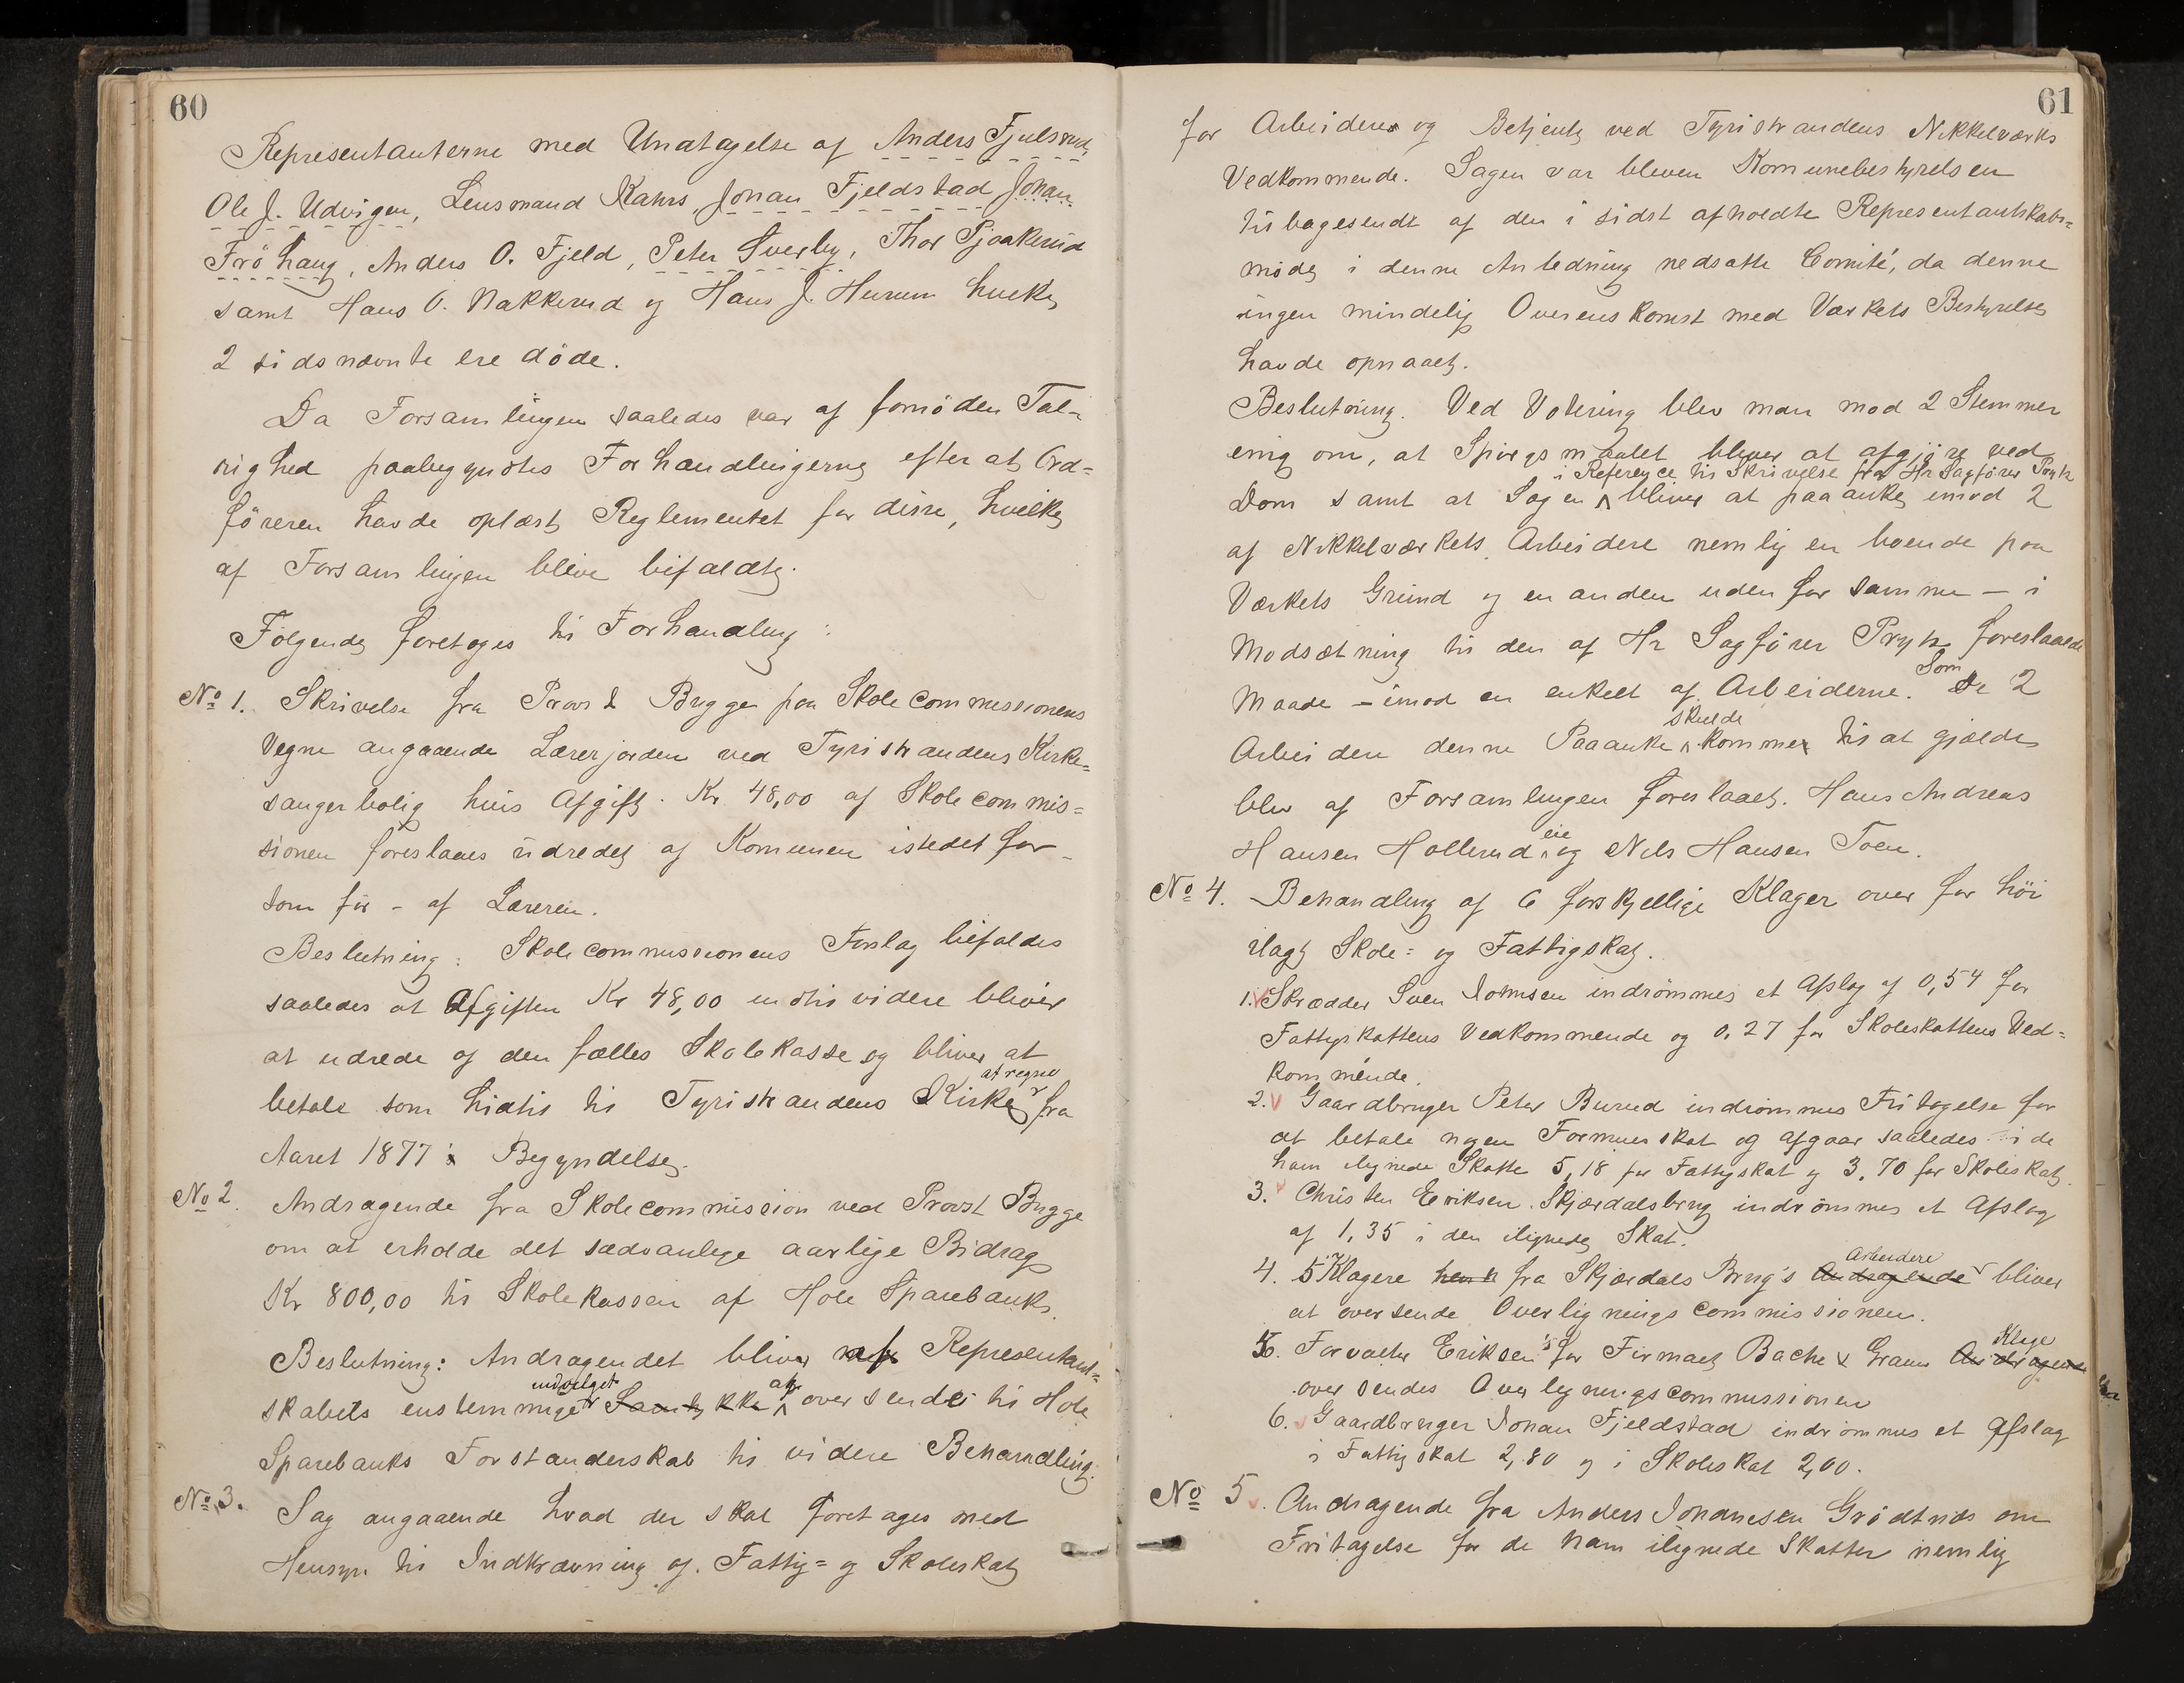 60
Representanterne med Unatagelse af Anders Fjulsrud,
Ole J. Udvigen, Lensmand Kahrs, Johan Fjeldstad Johan
Fröhaug, Anders O. Fjeld, Peter Sverby, Thor Pjaakerud
samt Hans O. Nakkerud og Hans J. Hurum hvilke
2 sidsnævnte ere døde.
Da Forsamlingen saaledes var af fornöden Tal-
righed paabegyndtes Forhandlingerne efter at Ord=
föreren havde oplæst Reglementet for disse, hvilke
af Forsamlingen bleve bifaldte.
Følgende foretoges til Forhandling:
No 1. Skrivelse fra Provst Brygge paa Skolecommissionens
Vegne angaaende Lærerjorden ved Tyristrandens Kirke=
sangerbolig hvis Afgift. Kr 48,00 af Skolecommis=
sionen foreslaaes udredet af Komunen istedet for -
som för - af Læreren.
Beslutning: Skolecommissionens Forslag bifaldes
saaledes at Afgiften Kr 48,00 indtil videre bliver
at udrede af den fælles Skolekasse og bliver at
at regne
betale som hidtil til Tyristrandens Kirke fra
Aaret 1877 s Begyndelse.
No 2. Andragende fra Skolecommission ved Provst Brygge
om at erholde det sædvanlige aarlige Bidrag
Kr 800,00 til Skolekassen af Hole Sparebank.
Beslutning: Andragendet bliver Representant=
indvilget at
skabets enstemmige Samtykke oversende til Hole
Sparebanks Forstanderskab til videre Behandling.
No 3. Sag angaaende hvad der skal foretages med
Hensyn til Indkrævning af Fattig= og Skoleskat
61
for Arbeidere og Betjente ved Tyristrandens Nikkelværks
Vedkommende. Sagen var bleven Komunebestyrelsen
tilbagesendt af den i sidst afholdte Representantskabs=
møde i denne Anledning nedsatte Comité, da denne
ingen mindelig Overenskomst med Værkets Bestyrelse
havde opnaaet.
Beslutning. Ved Votering blev man mod 2 Stemmer
enig om, at Spörgsmaalet bliver at afgjöre ved
i Reference til Skrivelse fra Hr Sagförer Prytz
Dom samt at Sagen bliver at paaanke imod 2
af Nikkelværkets Arbeidere nemlig en boende paa
Værkets Grund og en anden uden for samme - i
Modsætning til den af Hr Sagförer Prytz foreslaaede
Som
Maade - imod en enkelt af Arbeiderne. De 2
skulde
Arbeidere denne Paaanke kommer til at gjælde
blev af Forsamlingen foreslaaet. Hans Andreas
eie
Hansen Hollerud og Nils Hansen Toen.
No 4. Behandling af 6 forskjellige Klager over for höi
ilagt Skole= og Fattigskat.
1. Skrædder Sven Johnsen indrömmes et Afslag af 0,54 for
Fattigskattens Vedkommende og 0.27 for Skoleskattens Ved=
kommende.
2. Gaardbruger Peter Burud indrömmes Fritagelse for
at betale nogen Formuesskat og afgaar saaledes i de
ham ilignede Skatte 5,18 for Fattigskat og 3,70 for Skoleskat.
3. Christen Eriksen. Skjærdalsbrug indrömmes et Afslag
af 1,35 i den ilignede Skat.
Arbeidere
4. 5 Klagere fra Skjærdals Brug's Andragende bliver
at oversende Overligningscommissionen.
Klage
5. Forvalter Eriksen's for Firmaet Bache & Gram Andragende
oversendes Overligningscommissionen
6. Gaardbruger Johan Fjeldstad indrömmes et Afslag
i Fattigskat 2,80 og i Skoleskat 2,00.
No 5. Andragende fra Anders Johannesen Grödtnös om
Fritagelse for de ham ilignede Skatter nemlig